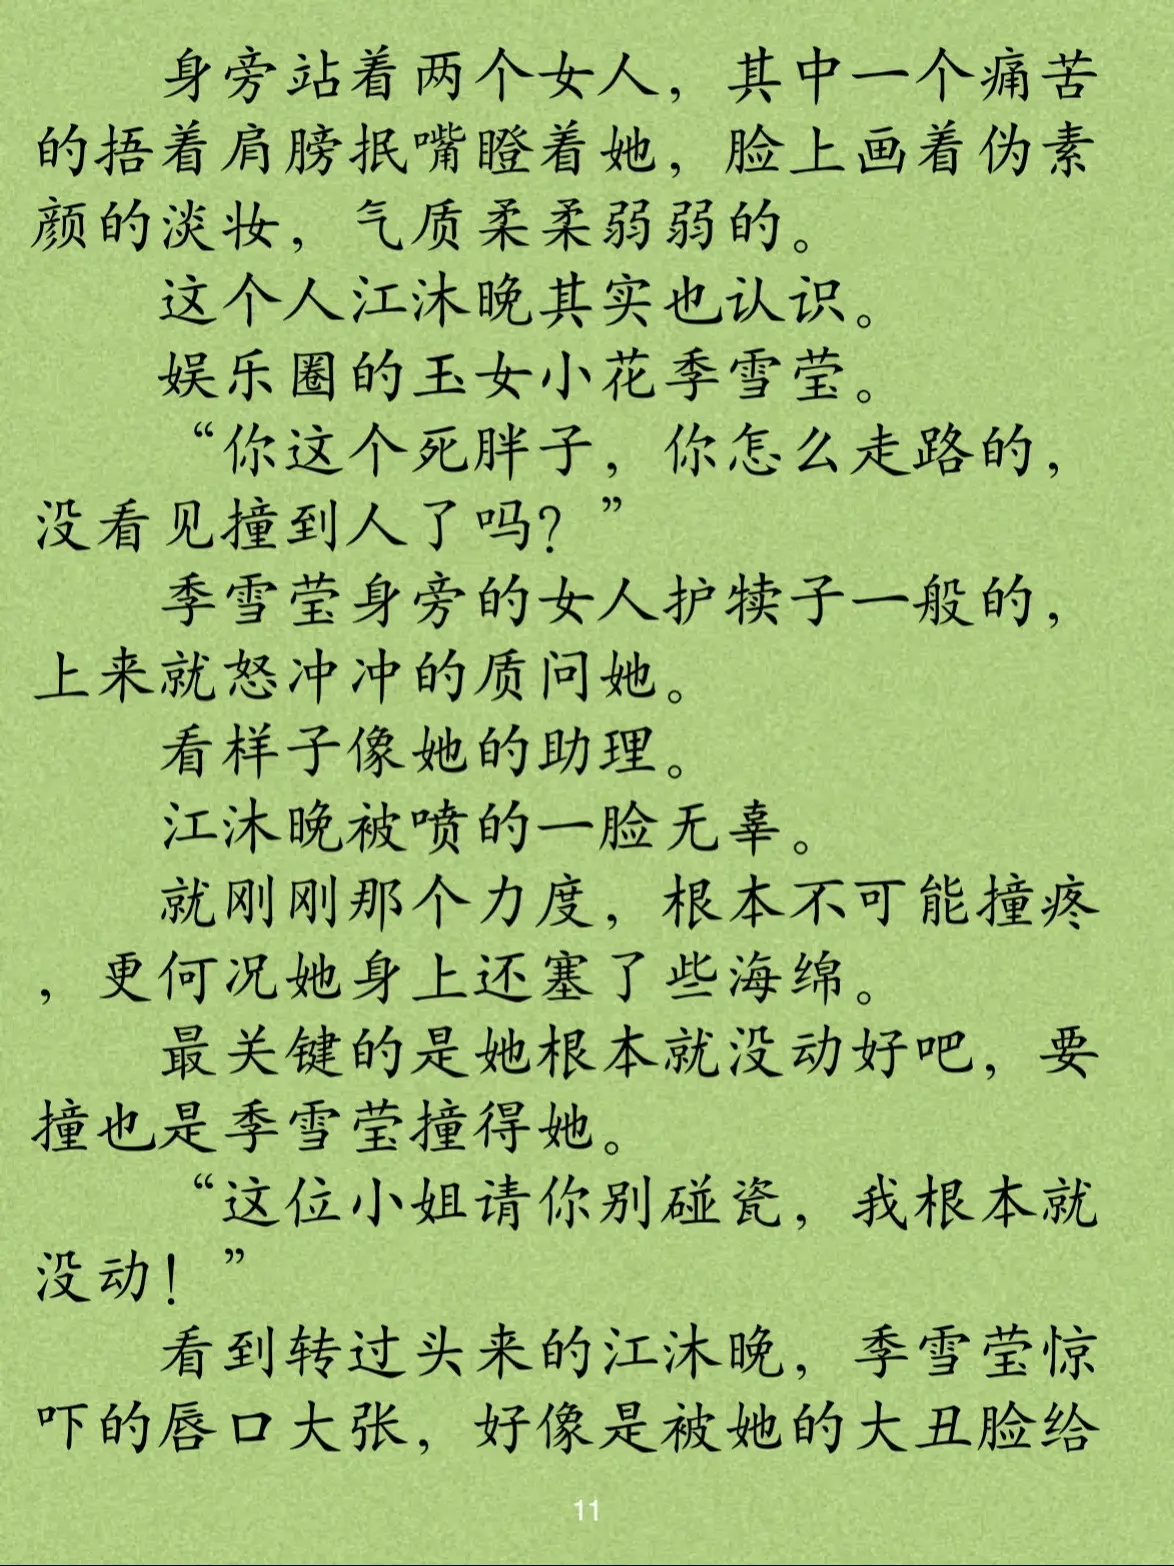 身旁站着两个女人，其中一个痛苦
的捂着肩膀抿嘴瞪着她，脸上画着伪素
颜的淡妆，气质柔柔弱弱的。
这个人江沐晚其实也认识。
娱乐圈的玉女小花季雪莹。
“你这个死胖子，你怎么走路的，
没看见撞到人了吗？”
季雪莹身旁的女人护犊子一般的，
上来就怒冲冲的质问她。
看样子像她的助理。
江沐晚被喷的一脸无辜。
就刚刚那个力度，根本不可能撞疼
，更何况她身上还塞了些海绵。
最关键的是她根本就没动好吧，要
撞也是季雪莹撞得她。
“这位小姐请你别碰瓷，我根本就
没动！”
看到转过头来的江沐晚，季雪莹惊
吓的唇口大张，好像是被她的大丑脸给
11